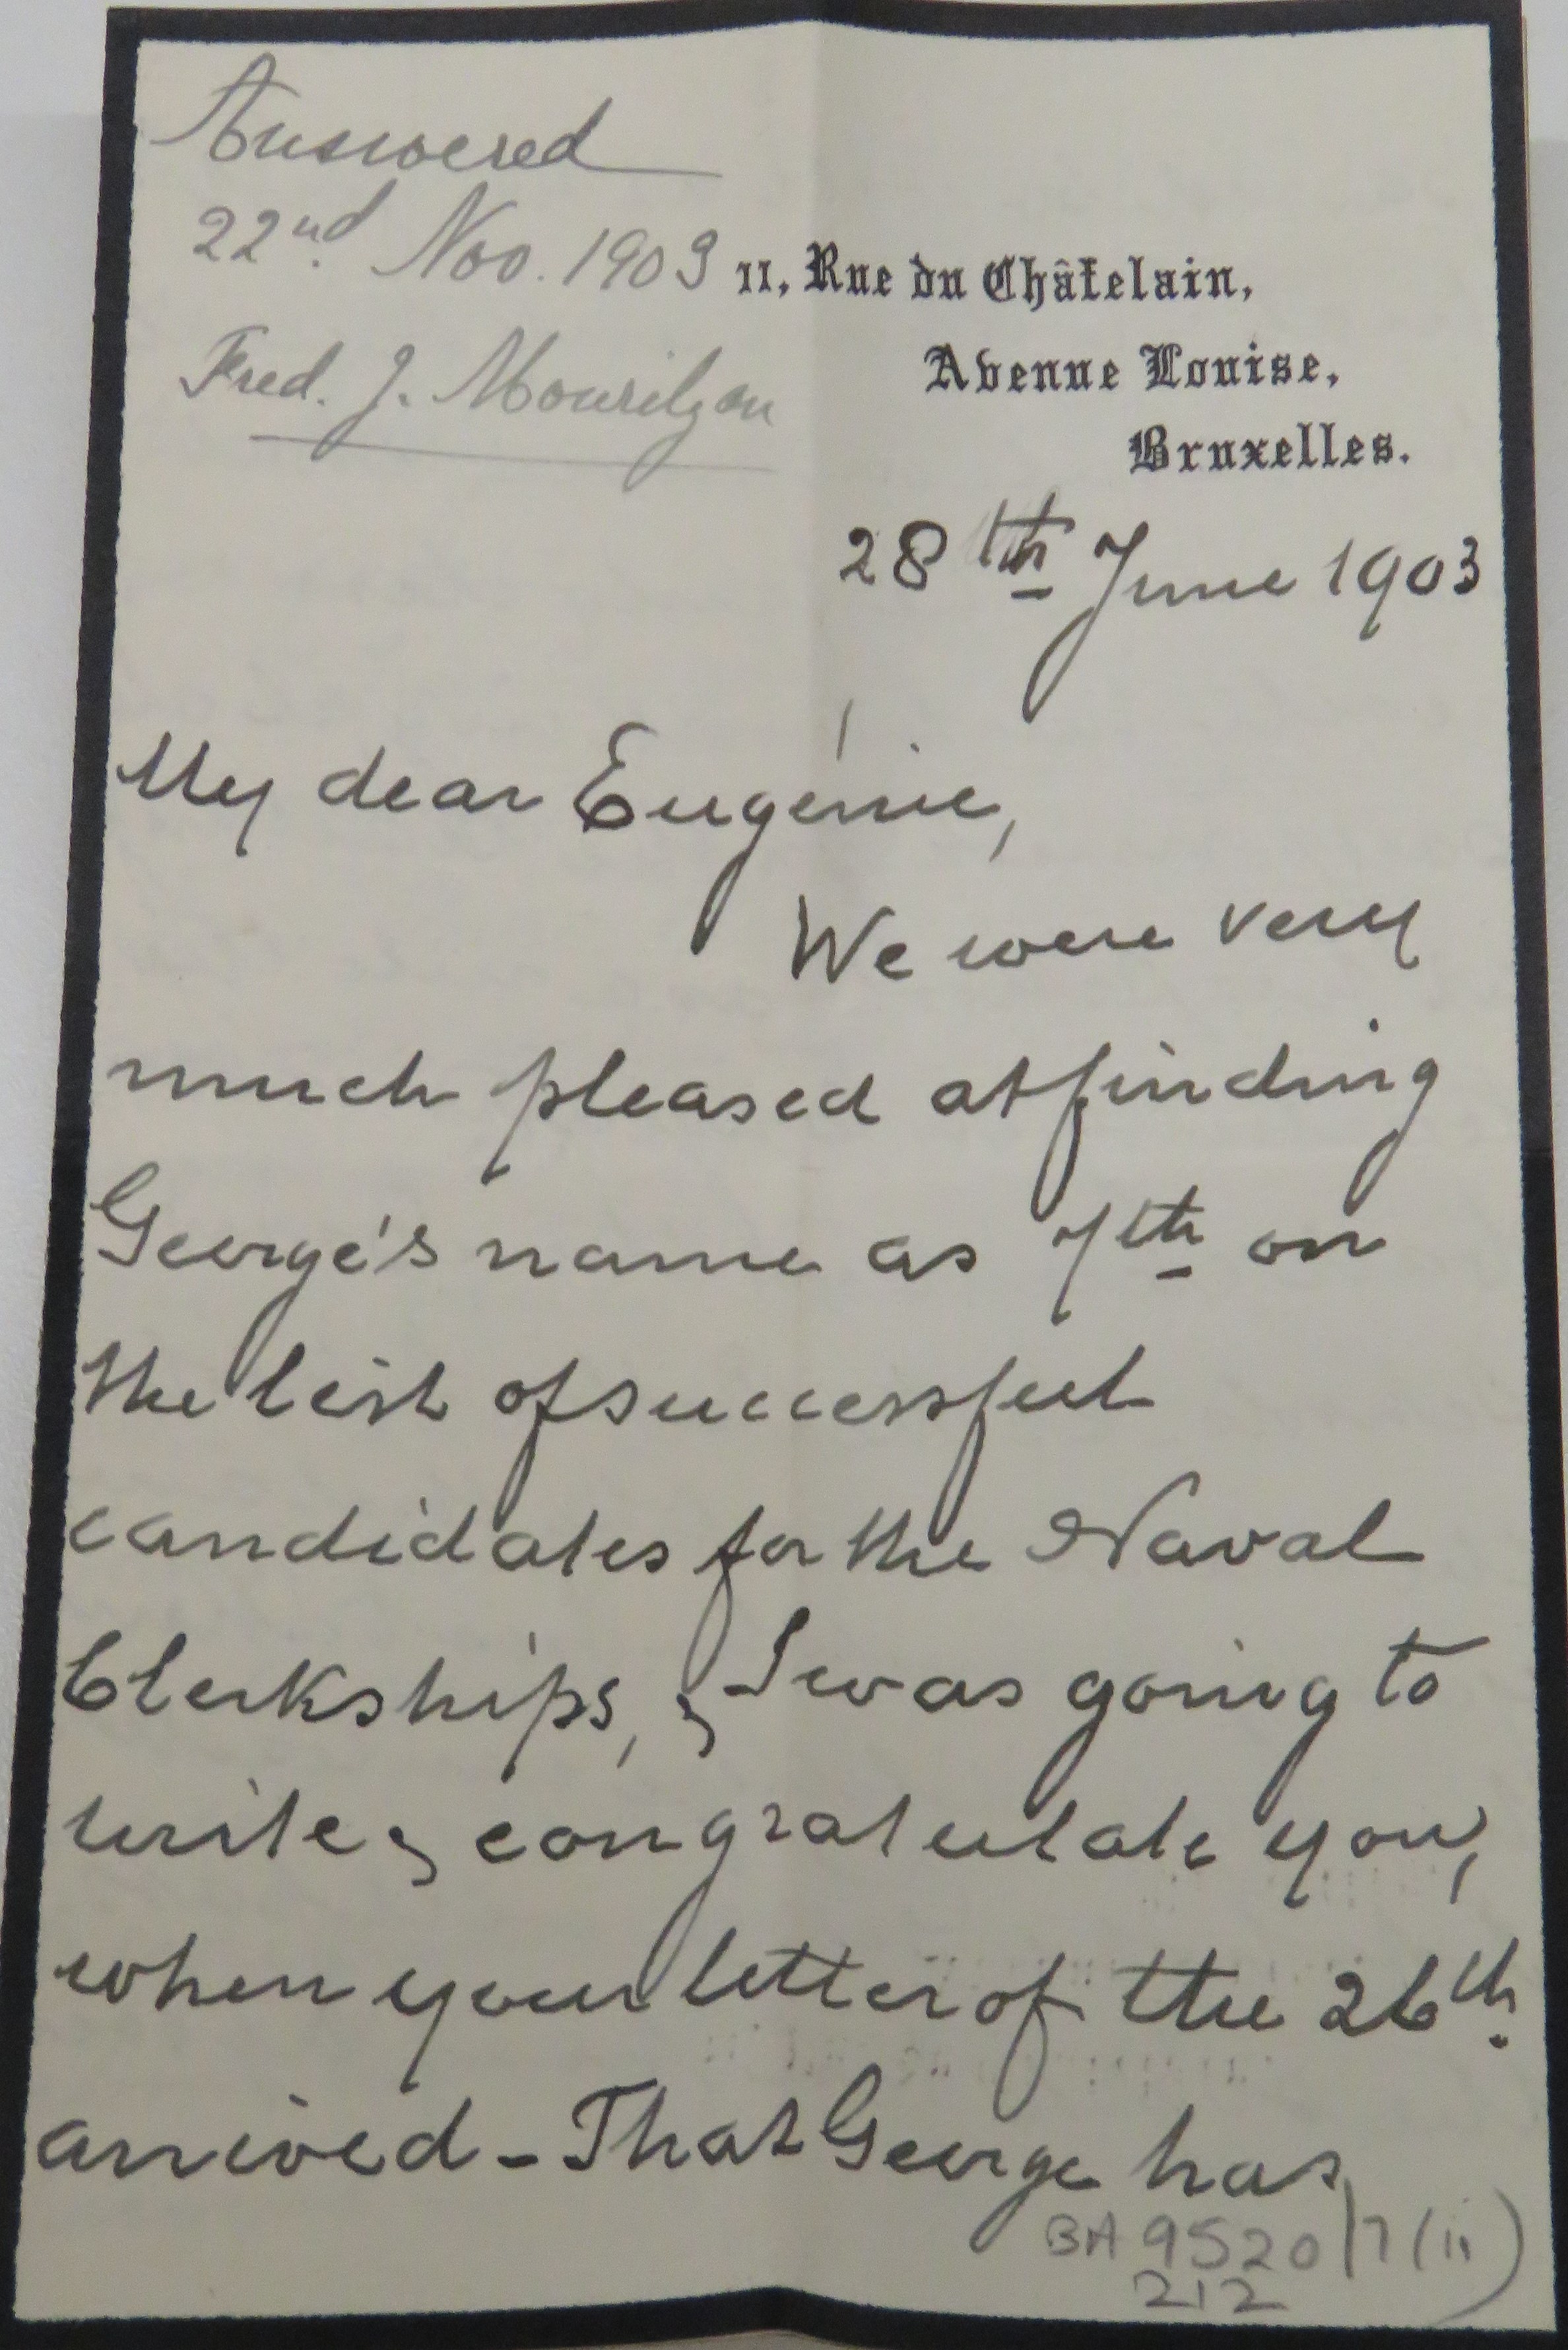 Answered
22nd Nov. 1903
Fred. J. Mourilyan
11, Rue du Châtelain,
Avenue Louise,
Bruxelles.
28th June 1903
My dear Eugénie,
We were very
much pleased at finding
George's name as 7th on
the list of successful
candidates for the Naval
Clerkships, & I was going to
write & congratulate you,
when your letter of the 26th
arrived - That George has
BA 9520/7(ii)
212